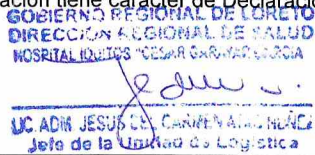 ación tiene carácter de Declaració
GOBIERNO REGIONAL DE LORETO
DIRECCIÓN REGIONAL DE SALUD
HOSPITAL IQUITOS "CESAR GARAYAR GARCIA
LIC. ADM. JESUS DEL CARMEN NUÑEZ
Jefe de la Unidad de Logística